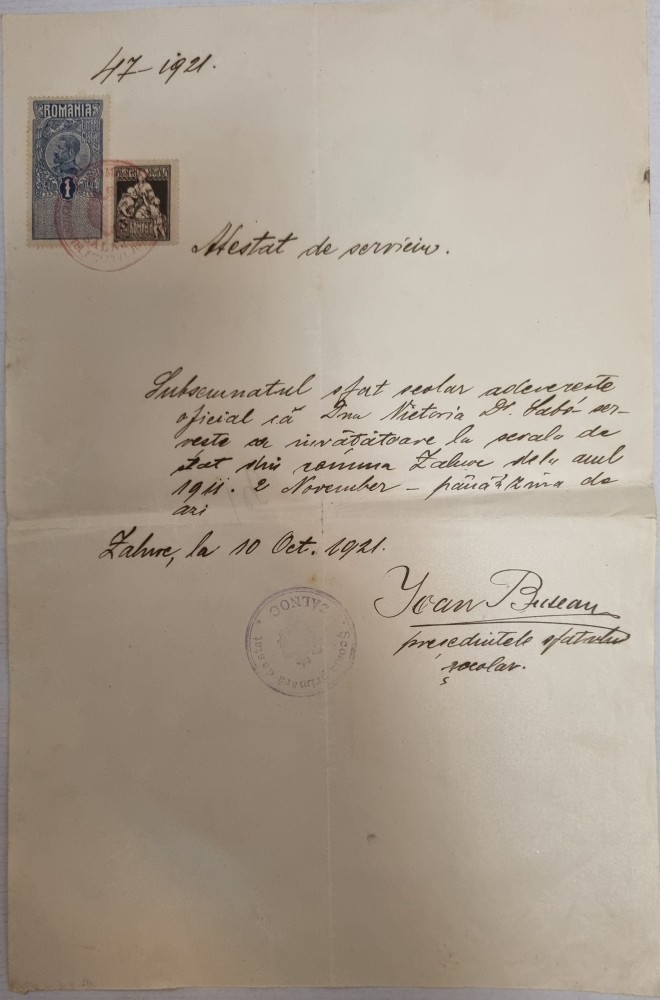 47–1921.
ROMANIA
1
Atestat de serviciu.
Subsemnatul sfat scolar adevereste
oficial că Dna Victoria Dr. Sabó ser-
veste ca învățătoare la scoala de
stat din comuna Zalnoc dela anul
1911. 2 November – până'n ziua de
azi
Zalnoc, la 10 Oct. 1921.
Ioan Busean
presedintele sfatului
școlar.
Școala primară de stat
ZALNOC